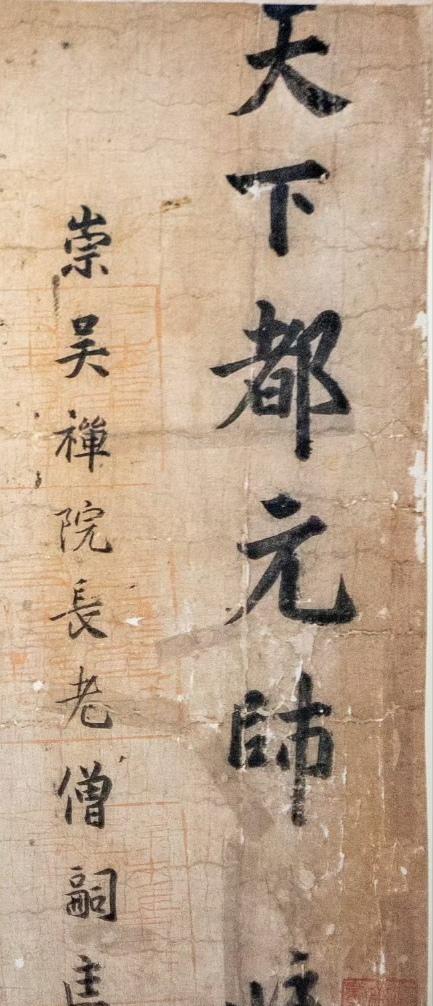 天下都元帥
崇吳禪院長老僧嗣